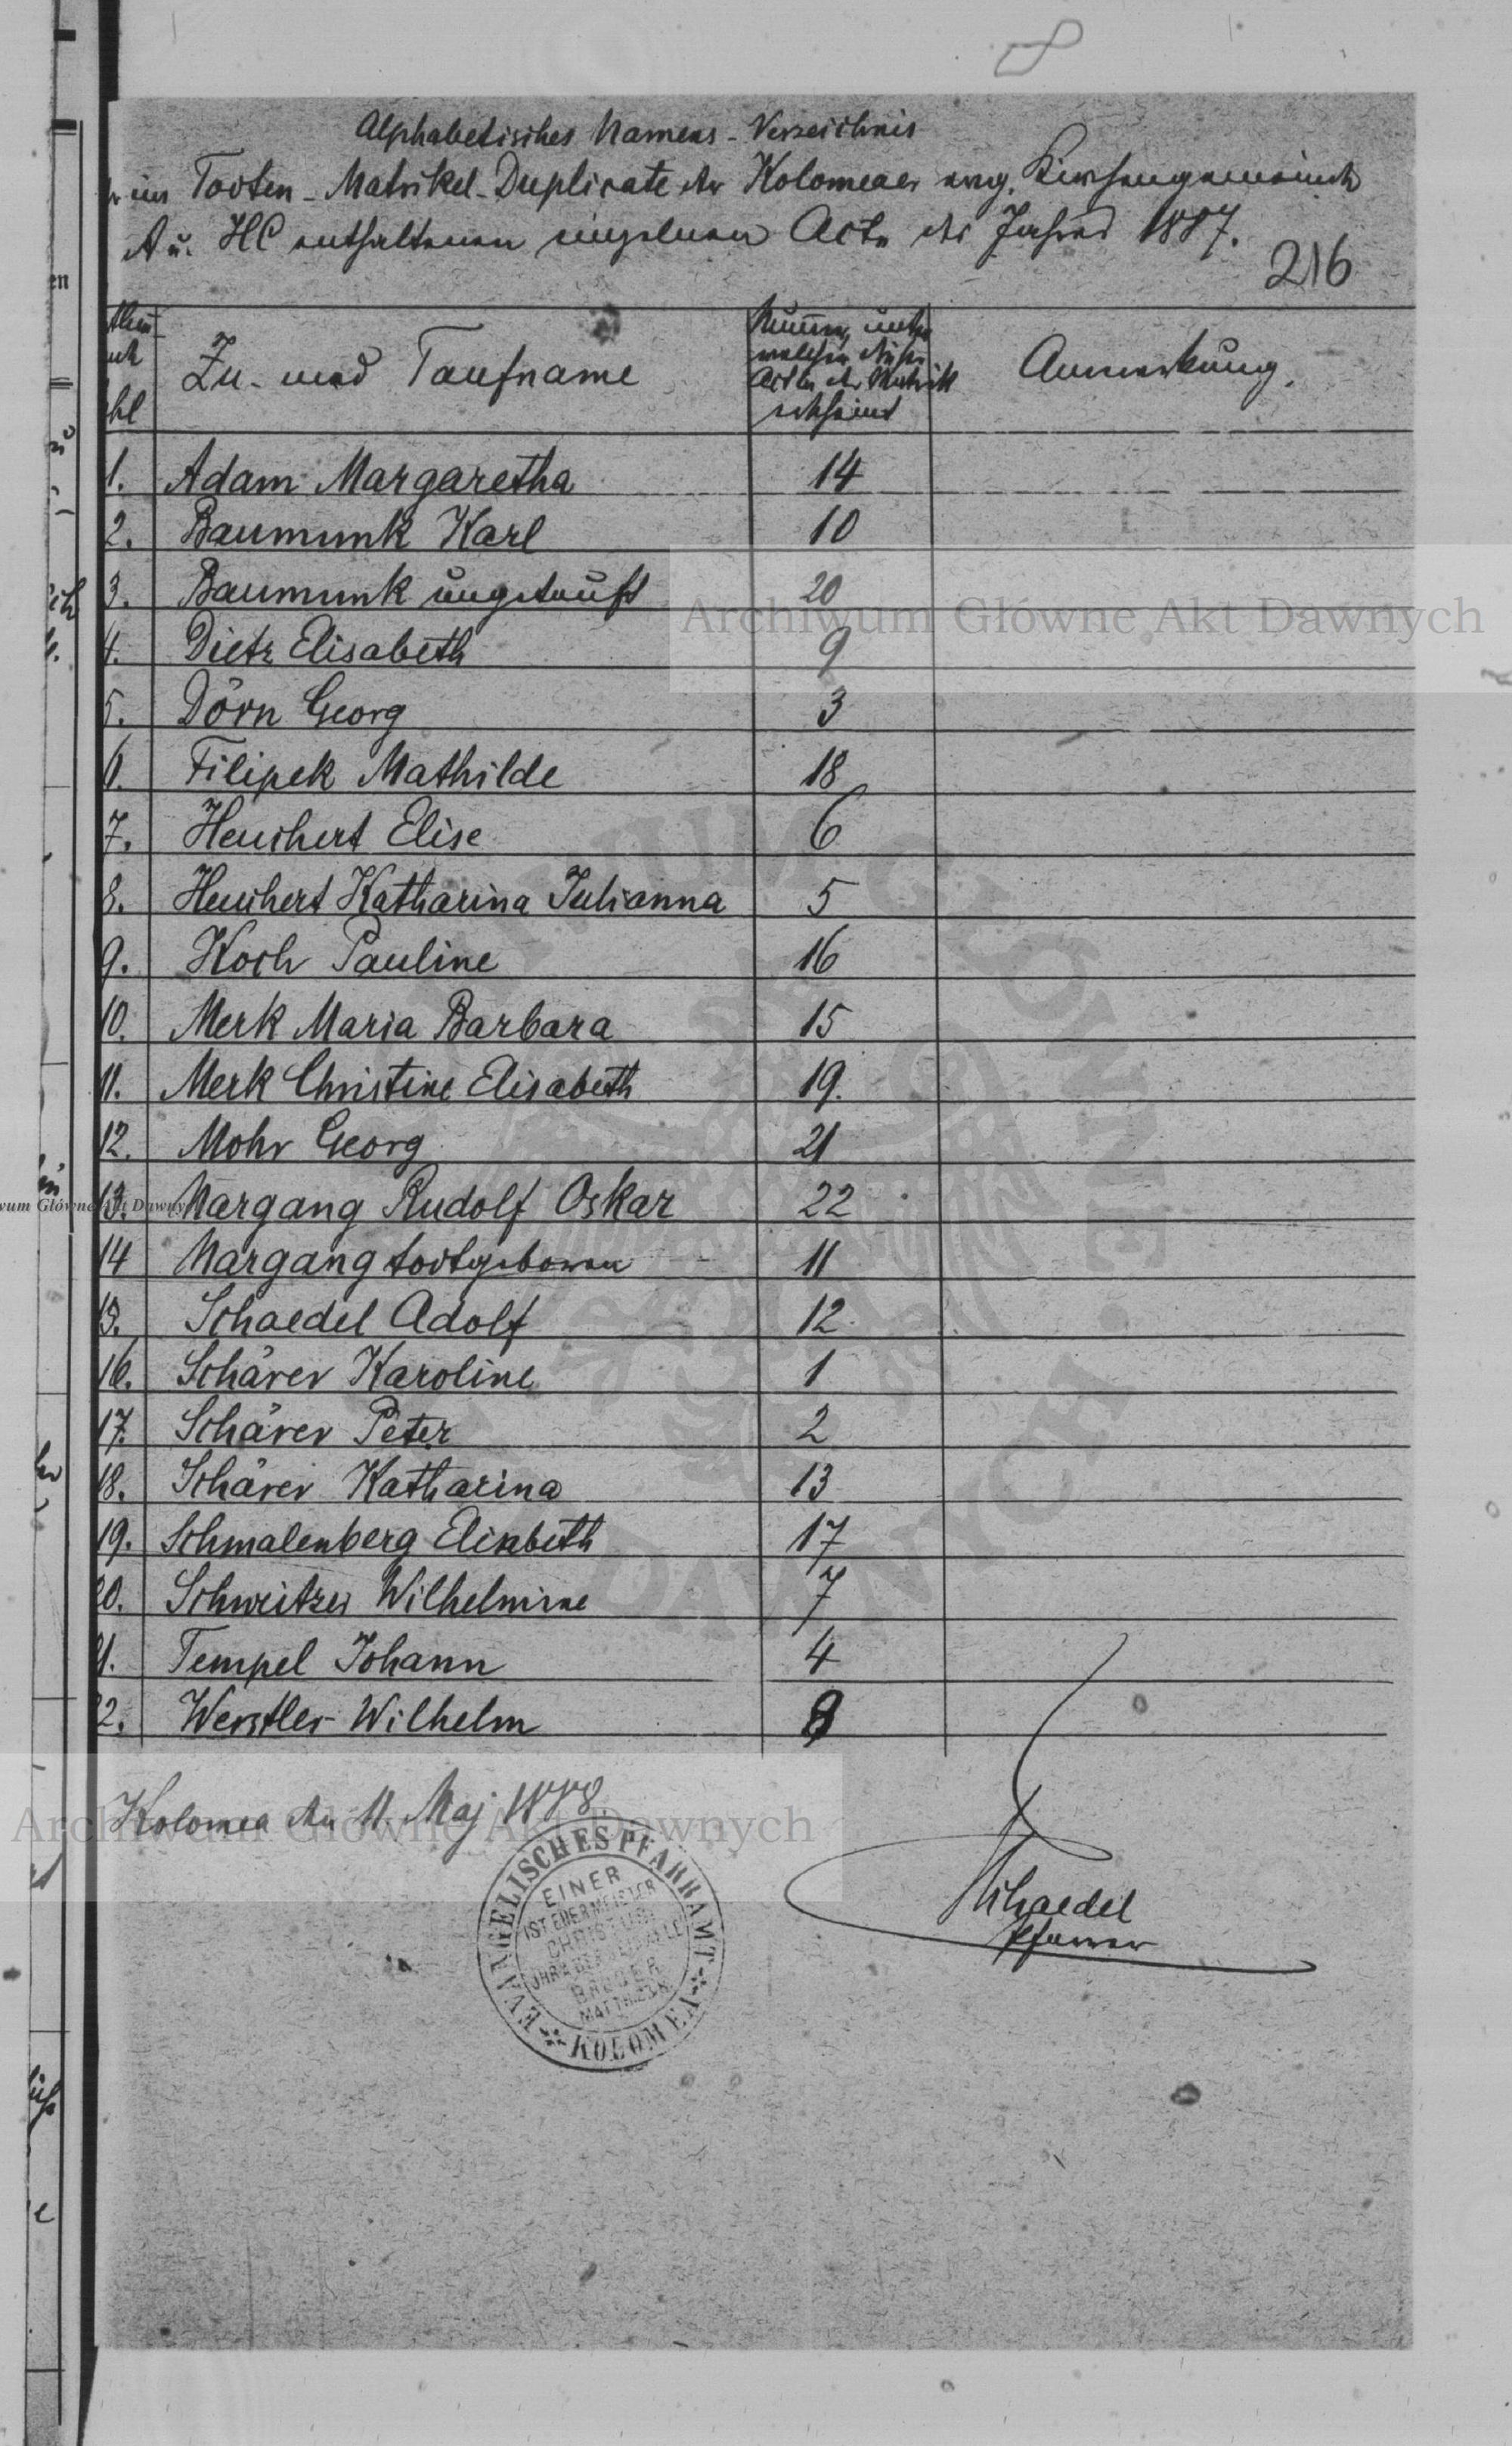 Alphabetisches Namens-Verzeichnis
im Todten-Matrikel-Duplicate der Kolomeaer evng. Kirchengemeinde
A u. HC enthaltenen einzelnen Acte des Jahres 1887.
216
Zu- und Taufname
Numer, unter
welcher dieser
Act in der Matrikel
erscheint
Anmerkung.
1. Adam Margaretha 14
2. Baumunk Karl 10
3. Baumunk ungetauft 20
4. Dietz Elisabeth 9
5. Dörn Georg 3
6. Filipek Mathilde 18
7. Heuchert Elise 6
8. Heuchert Katharina Julianna 5
9. Koch Pauline 16
10. Merk Maria Barbara 15
11. Merk Christine Elisabeth 19.
12. Mohr Georg 21
13. Nargang Rudolf Oskar 22
14 Nargang todtgeboren 11
15. Schaedel Adolf 12
16. Schärer Karoline 1
17. Schärer Peter 2
18. Schärer Katharina 13
19. Schmalenberg Elisabeth 17
20. Schweitzer Wilhelmine 7
21. Tempel Johann 4
22. Werstler Wilhelm 8
Kolomea den 11. Maj 1888.
Schaedel
Pfarrer
EVANGELISCHES PFARRAMT
KOLOMEA
EINER
IST EUER MEISTER
CHRISTUS
IHR ABER SEID ALLE
BRÜDER
Archiwum Główne Akt Dawnych
Archiwum Główne Akt Dawnych